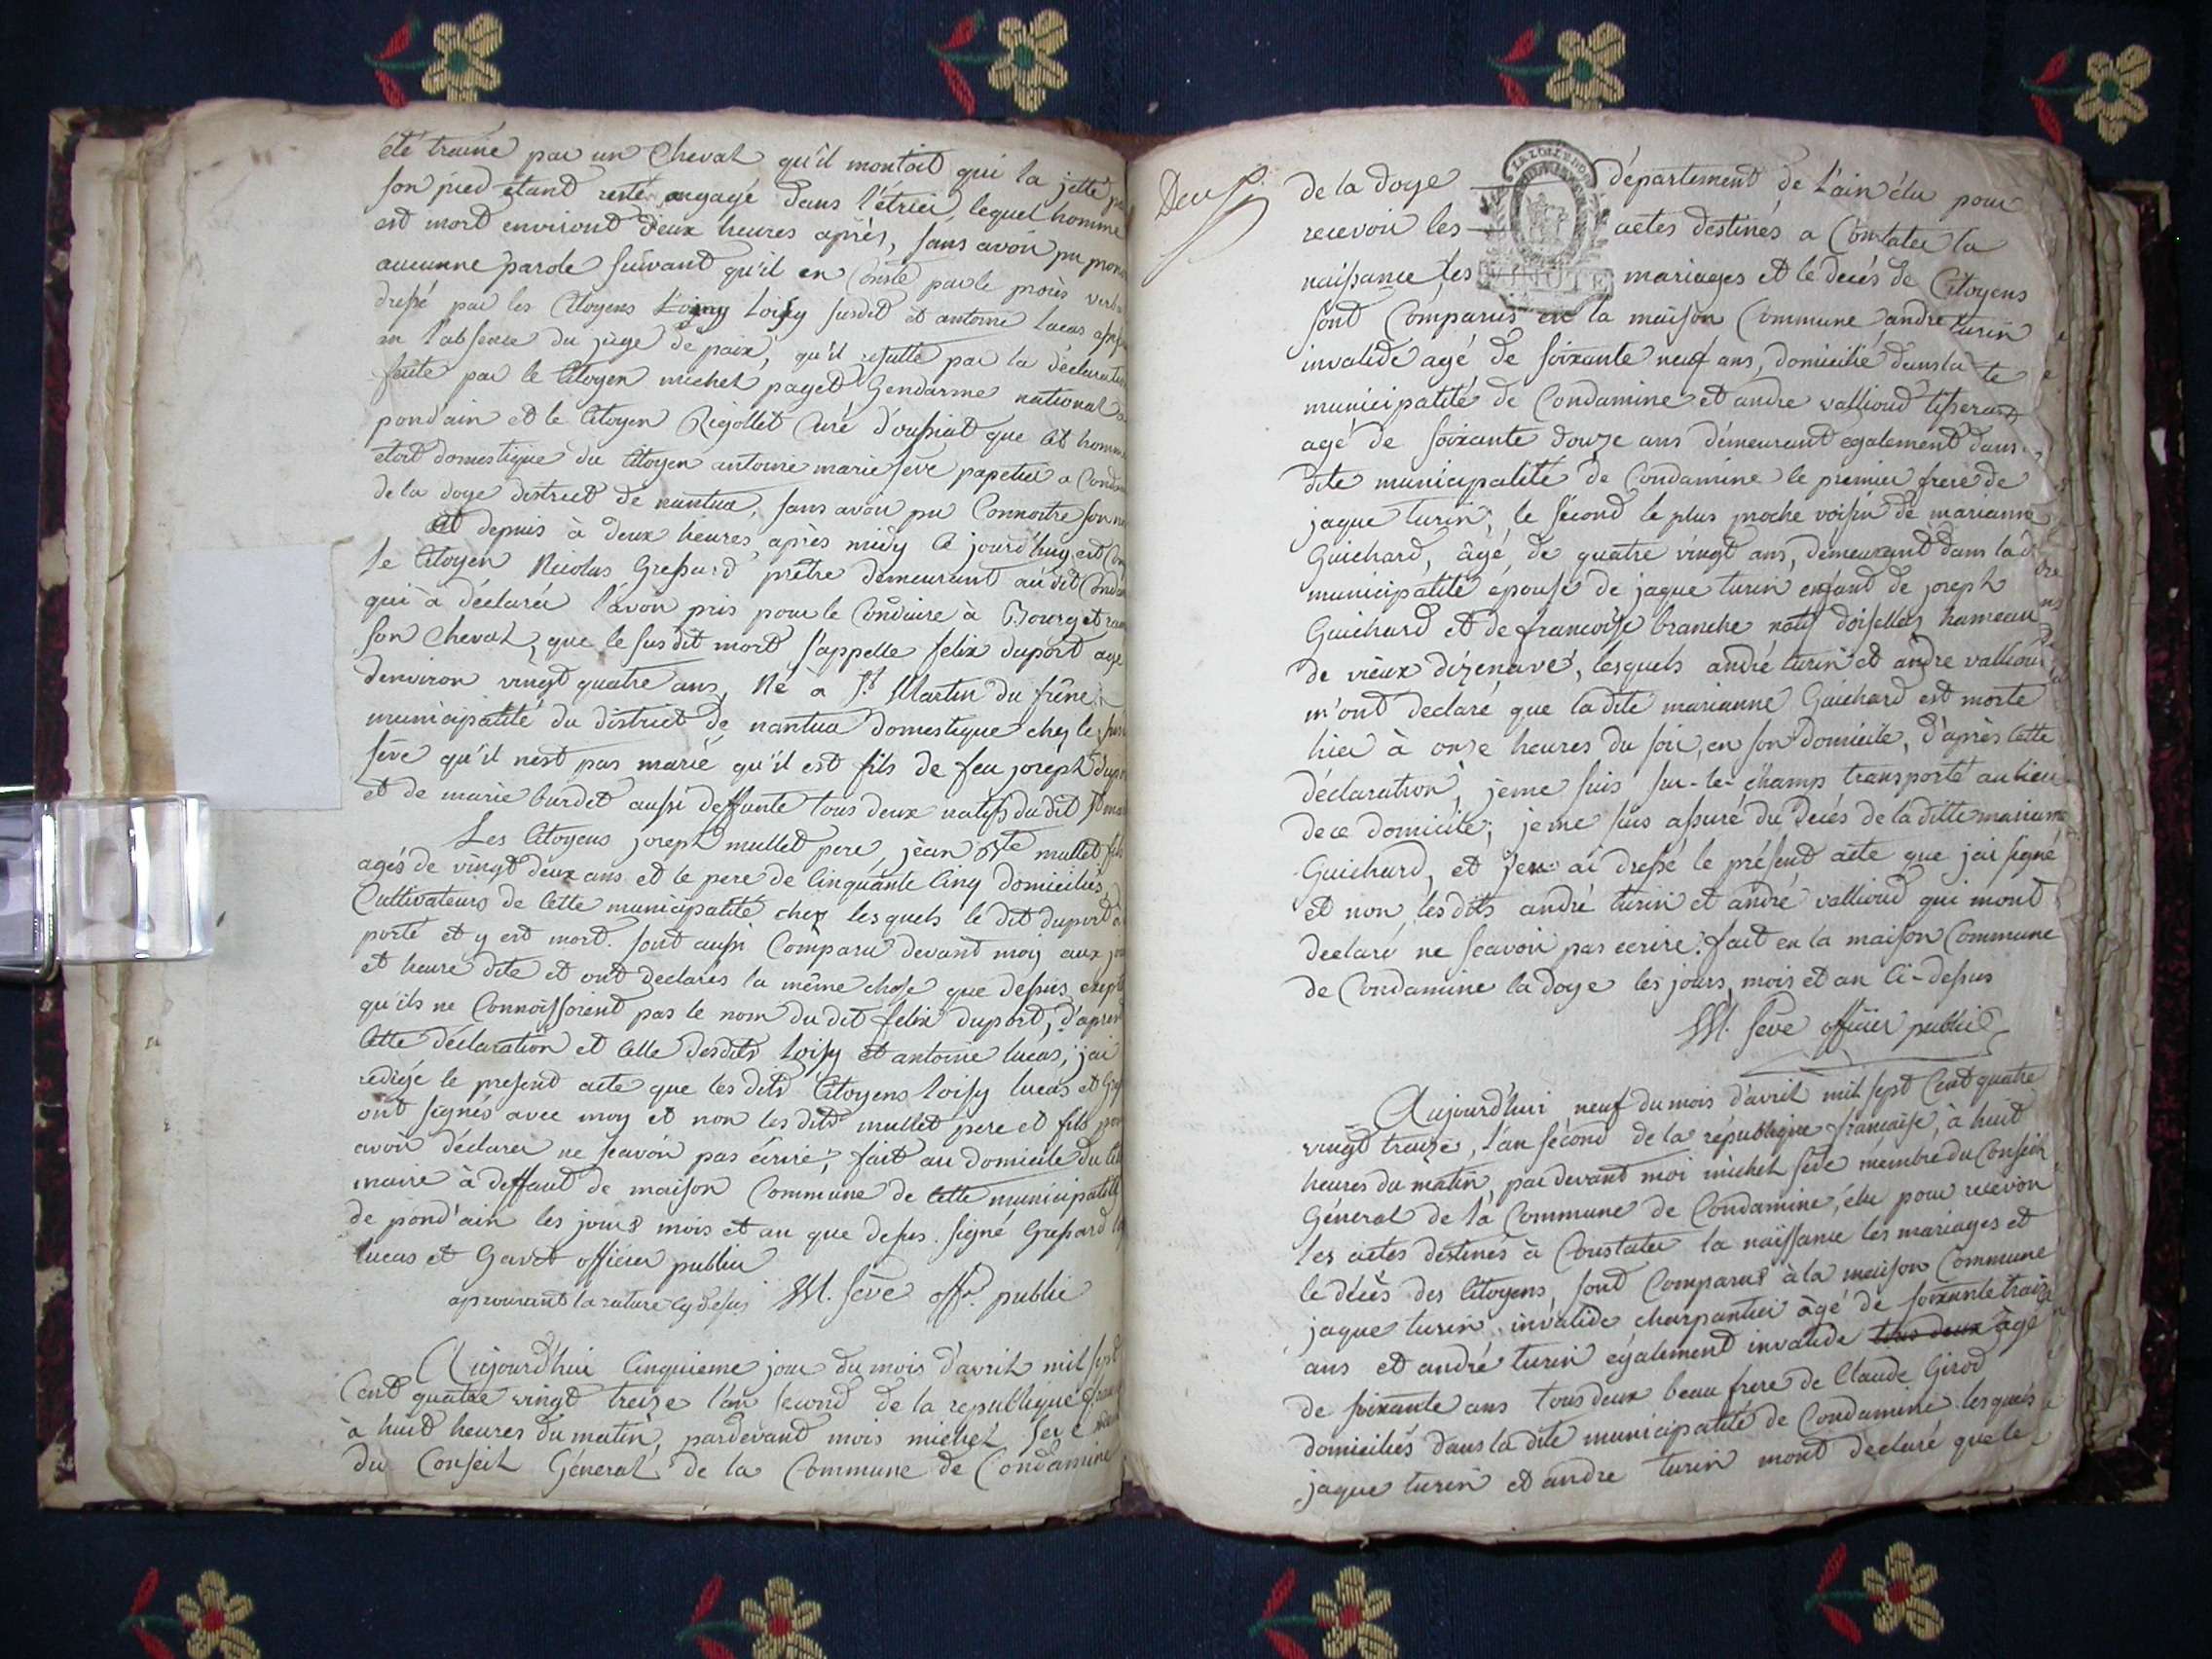 été trainé par un Cheval qu'il montoit qui la jetté
son pied étant resté angagé dans l'étrier, lequel homme
est mort environt deux heures après, sans avoir pu
aucunne parole suivant qu'il en Conste par le procès
dressé par les Citoyens Loisy susdit et antoine lucas
en l'absence du juge de paix, qu'il resulte par la
faite par le Citoyen michel paget Gendarme national
pond'ain et le Citoyen Rigollet Curé d'oussiat que Cet
etoit domestique du Citoyen antoine marie sève papetier a
de la doye district de nantua, sans avoir pu Connoitre son
et depuis à deux heures après midy Ce jourd'huy est
le Citoyen Nicolas Gressard prêtre demeurant au dit
qui à déclarer l'avoir pris pour le Conduire à Bourg et
son Cheval, que le sus dit mort s'appelle felix duport agé
d'environ vingt quatre ans, Né à St Martin du frêne
municipalité du district de nantua domestique chez le
sève qu'il n'est pas marié qu'il est fils de feu joseph
et de marie burdet aussi deffunte tous deux natifs du dit St
Les Citoyens joseph mullet pere, jean Bte mullet fils
agés de vingt deux ans et le pere de Cinquante Cinq domiciliés
Cultivateurs de Cette municipalité chez les quels le dit duport à
porté et y est mort. sont aussi Comparu devant moy aux
et heure dite et ont declarés la même chose que dessus
qu'ils ne Connoissoient pas le nom du dit felix duport,
Cette déclaration et Celle desdits Loisy et antoine lucas, j'ai
rédigé le present acte que les dits Citoyens Loisy lucas et
ont signés avec moy et non les dits mullet pere et fils
avoir déclarer ne sçavoir pas écrire, fait au domicile du
maire à deffaut de maison Commune de Cette municipalité
de pond'ain les jours mois et an que dessus. signé Gressard
lucas et Gavet officier publiu
aprouvant la rature Cy dessus M. Sève offr. public
Aujourd'hui Cinquieme jour du mois d'avril mil sept
Cent quatre vingt treize l'an second de la republique
à huit heures du matin, pardevant mois michel seve
du Conseil Géneral de la Commune de Condamine
Deux
de la doye département de l'ain élu pour
recevoir les actes destinés a Constater la
naissance, les mariages et le decés de Citoyens
MINUTE
sont Comparus en la maison Commune andre turin
invalide agé de soixante neuf ans, domicilié dans la
municipalité de Condamine et andre vallioud tisserand
agé de soixante douze ans démeurant également dans
dite municipalité de Condamine le premier frere de
jaque turin, le sécond le plus proche voisin de marianne
Guichard, âgé de quatre vingt ans, demeurant dans la d
municipalité épouse de jaque turin enfant de joseph
Guichard et de francoise branche natif hameau
de vieux dizenave, lesquels andré turin et andre
m'ont declaré que ladite marianne Guichard est morte
hier à onze heures du soir, en son domicile, d'après Cette
déclaration, jeme suis sur-le-champ transporté au lieu
de ce domicile, jeme suis assuré du decés de la ditte
Guichard, et j'en ai dressé le présent acte que j'ai signé
et non, les dits andré turin et andré vallioud qui m'ont
declaré ne scavoir pas ecrire. fait en la maison Commune
de Condamine la doye les jours, mois et an Ci-dessus
M. sève officier public
Aujourd'hui neuf du mois d'avril mil sept Cent quatre
vingt treize, l'an sécond de la république française, à huit
heures du matin, par devant moi michel sève mémbre du Conseil
Géneral de la Commune de Condamine, élu pour recevoir
les actes destinés à Constater la naissance les mariages et
le décés des Citoyens, sont Comparus à la maison Commune
jaque turin invalide charpantier âgé de soixante
ans et andré turin également invalide tous deux âgé
de soixante ans tous deux beau frere de Claude Girod
domiciliés dans la dite municipalité de Condamine lesquels
jaque turin et andre turin m'ont declaré que le